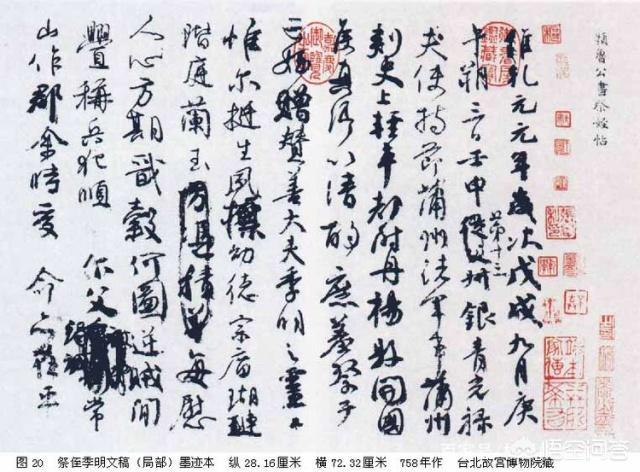 顏魯公書祭姪帖
維乾元元年歲次戊戌九月庚
午朔三日壬申第十三從父銀青光祿
夫使持節蒲州諸軍事蒲州
刺史上輕車都尉丹楊縣開國
侯真卿以清酌庶羞祭于
亡姪贈贊善大夫季明之靈曰
惟爾挺生夙標幼德宗廟瑚璉
階庭蘭玉方憑積善每慰
人心方期戩穀何圖逆賊閒
釁稱兵犯順 爾父竭誠常
山作郡余時受 命亦在平
图 20 祭侄季明文稿（局部）墨迹本 纵28.16厘米 横72.32厘米 758年作 台北故宫博物院藏
悟空问答